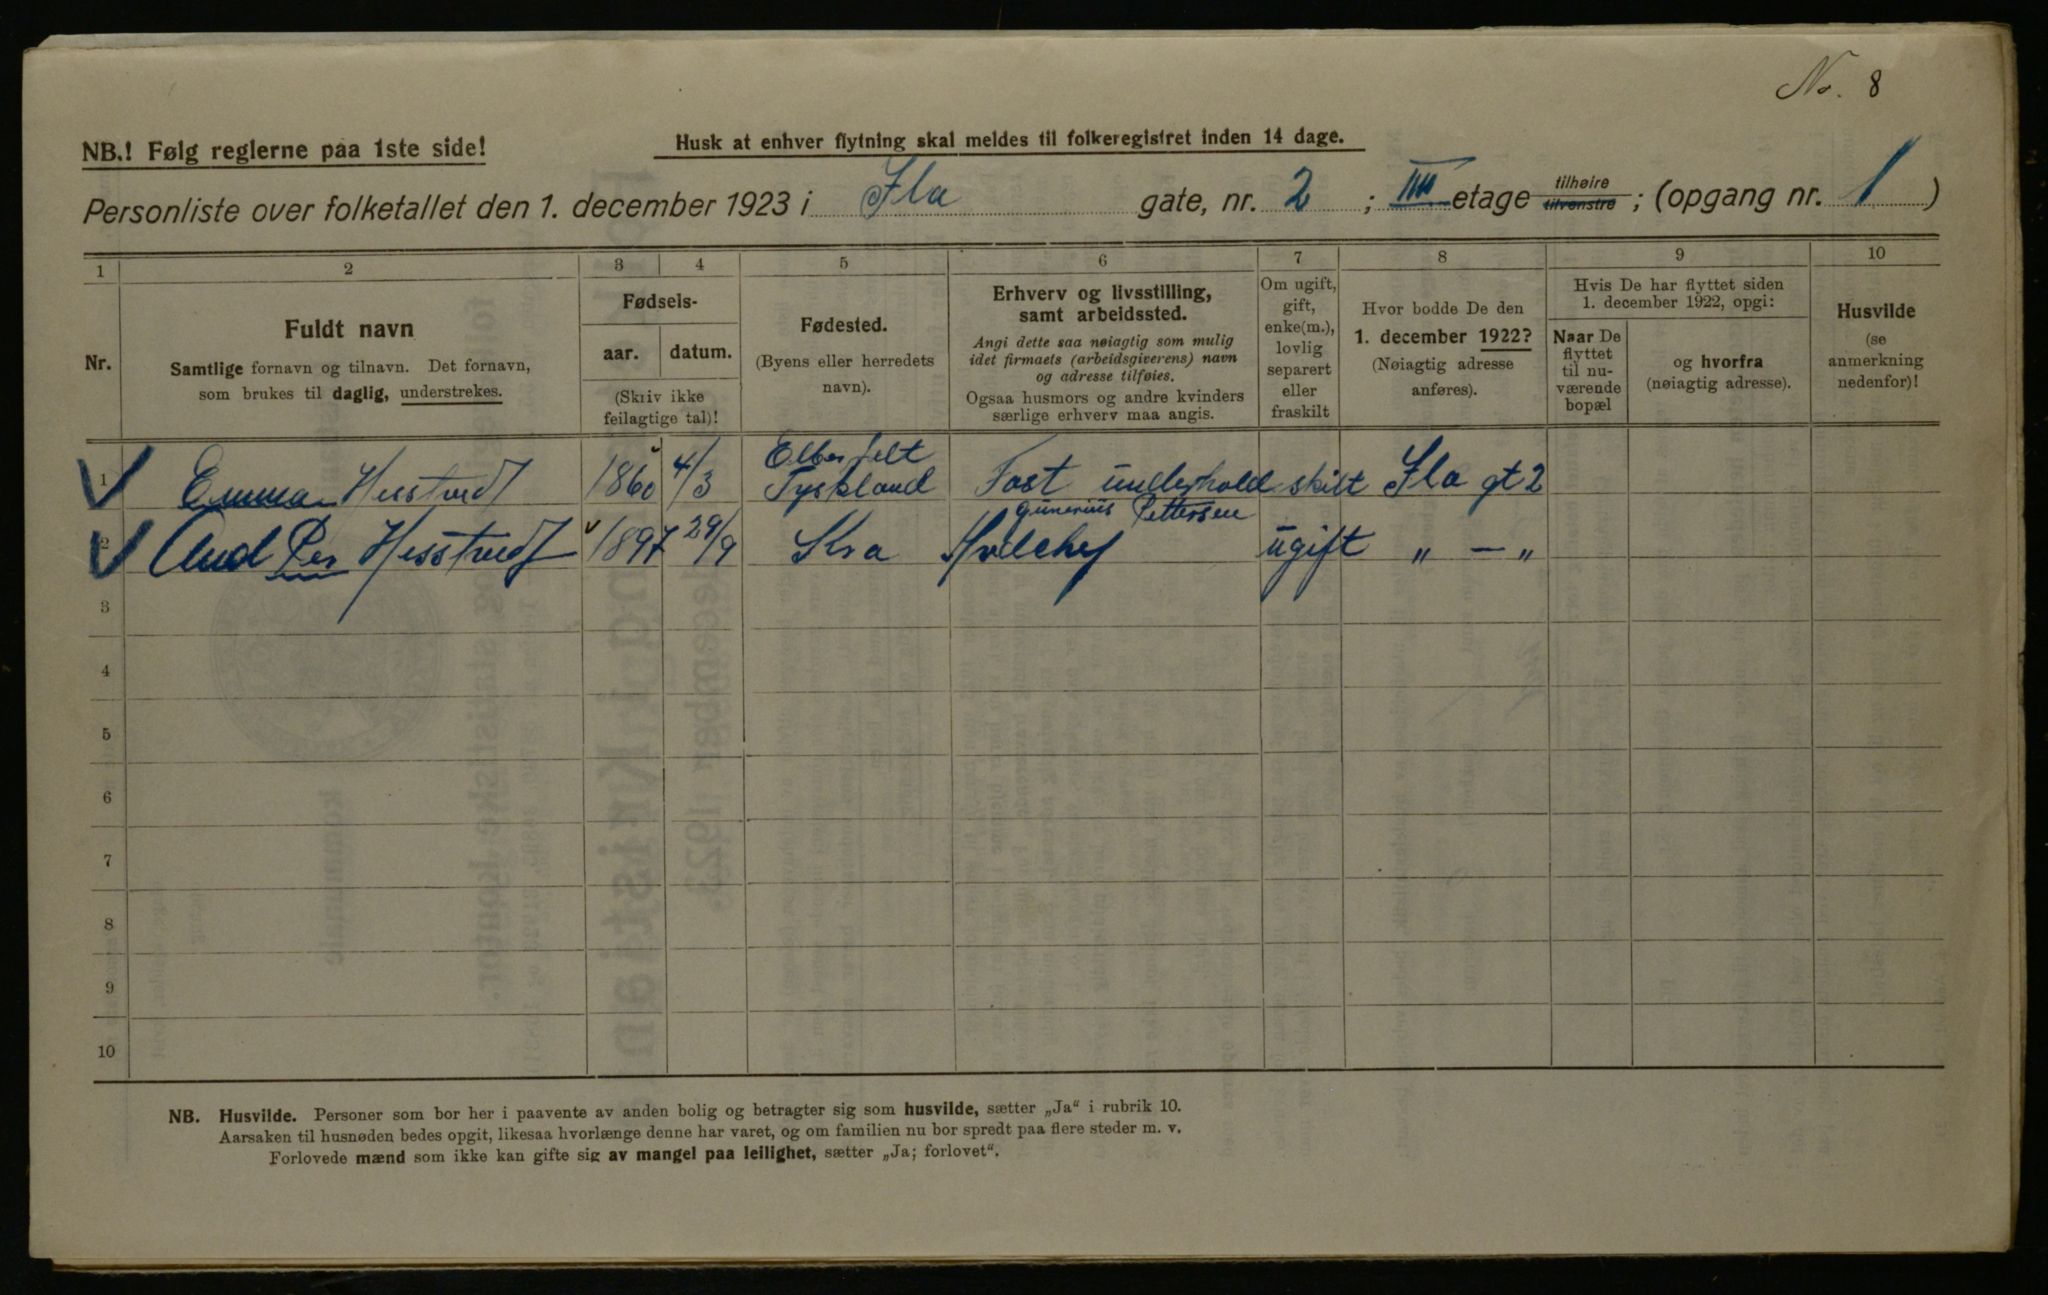 No. 8
NB.! Følg reglerne paa 1ste side!
Husk at enhver flytning skal meldes til folkeregistret inden 14 dage.
Personliste over folketallet den 1. december 1923 i Ila gate, nr. 2 ; III etage tilhøire tilvenstre ; (opgang nr. 1 )
1 2 3 4 5 6 7 8 9 10
Nr.
Fuldt navn
Samtlige fornavn og tilnavn. Det fornavn,
som brukes til daglig, understrekes.
Fødsels-
aar. datum.
(Skriv ikke
feilagtige tal)!
Fødested.
(Byens eller herredets
navn).
Erhverv og livsstilling,
samt arbeidssted.
Angi dette saa nøiagtig som mulig
idet firmaets (arbeidsgiverens) navn
og adresse tilføies.
Ogsaa husmors og andre kvinders
særlige erhverv maa angis.
Om ugift,
gift,
enke(m.),
lovlig
separert
eller
fraskilt
Hvor bodde De den
1. december 1922?
(Nøiagtig adresse
anføres).
Hvis De har flyttet siden
1. december 1922, opgi:
Naar De
flyttet
til nu-
værende
bopæl
og hvorfra
(nøiagtig adresse).
Husvilde
(se
anmerkning
nedenfor)!
Elberfelt
1 Emma Hesstvedt 1860 4/3 Tyskland Fast underhold skilt Ila gt 2
Gunerius Pettersen
2 Per Hesstvedt 1897 29/9 Kra ugift „ — „
3
4
5
6
7
8
9
10
NB. Husvilde. Personer som bor her i paavente av anden bolig og betragter sig som husvilde, sætter „Ja“ i rubrik 10.
Aarsaken til husnøden bedes opgit, likesaa hvorlænge denne har varet, og om familien nu bor spredt paa flere steder m. v.
Forlovede mænd som ikke kan gifte sig av mangel paa leilighet, sætter „Ja; forlovet“.